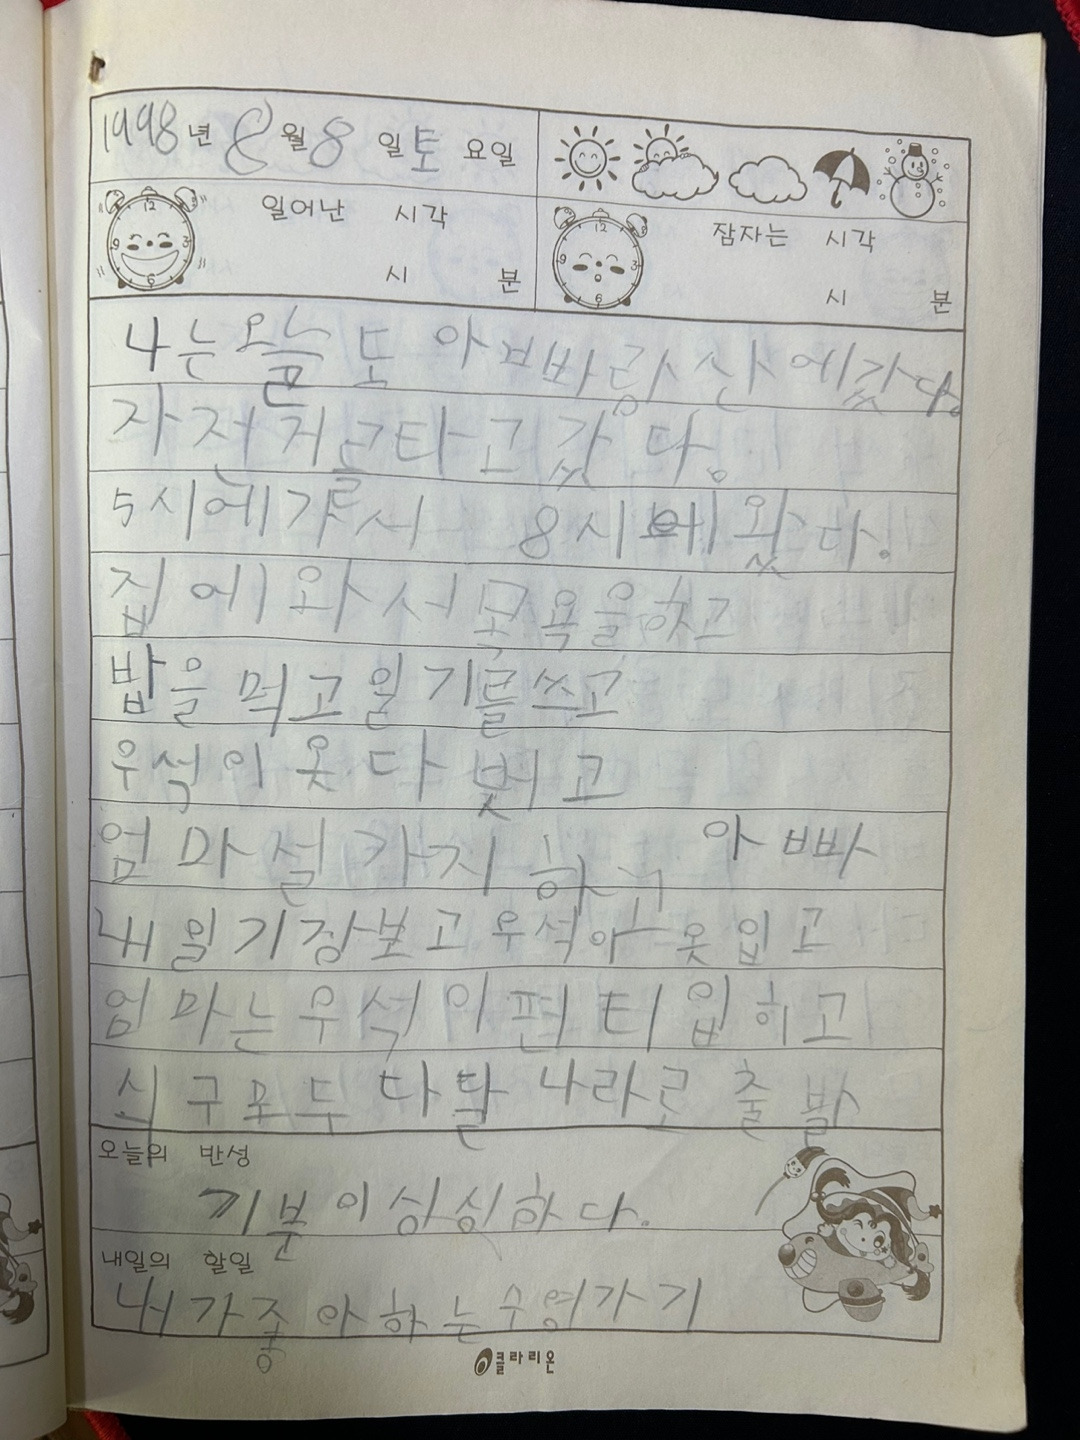 1998년 8월 8 일 토 요일
일어난 시각
시 분
잠자는 시각
시 분
나는 오늘 도 아빠랑 산에 갔다.
자전거로 타고 갔다.
5시에 가서 8시에 왔다.
집에 와서 목욕을 하고
밥을 먹고 일기를 쓰고
우석이 옷 다 벗고
엄마 설거지 하고 아빠
내 일기장 보고 우석이 옷 입고
엄마는 우석이 편 티 입히고
식구 모두 다 달나라로 출발
오늘의 반성
기분이 싱싱하다.
내일의 할일
내가 좋아하는 수영가기
클라리온